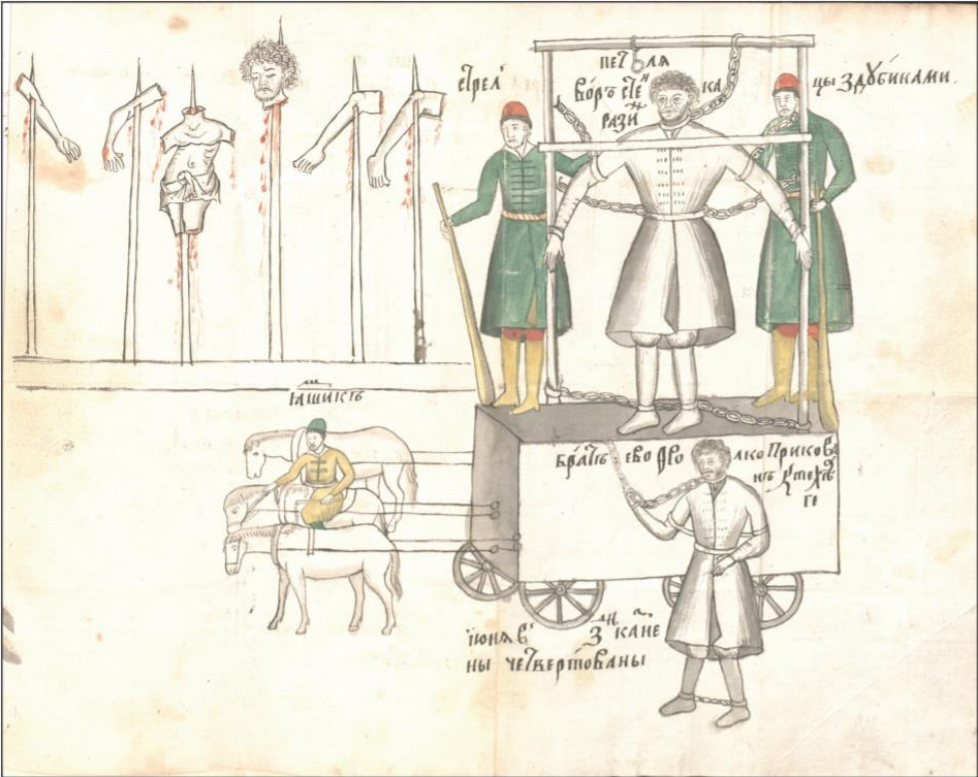 стрелцы з дубинами.
петля
воръ стенка
рази
ꙗмщикъ
братъ ево Фролко прикова
нъ у телѣ
ги
июня в
ны четвертованы